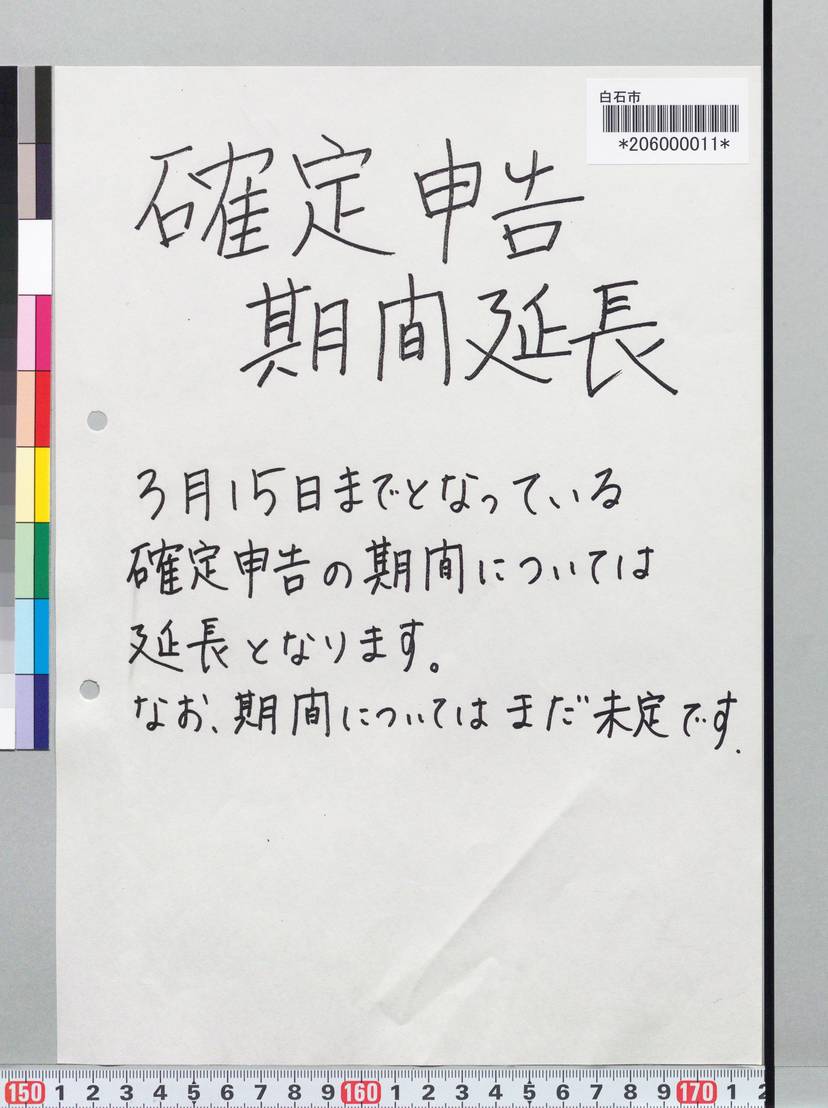 白石市
*206000011*
確定申告
期間延長
3月15日までとなっている
確定申告の期間については
延長となります。
なお、期間についてはまだ未定です.
150 1 2 3 4 5 6 7 8 9 160 1 2 3 4 5 6 7 8 9 170 1 2